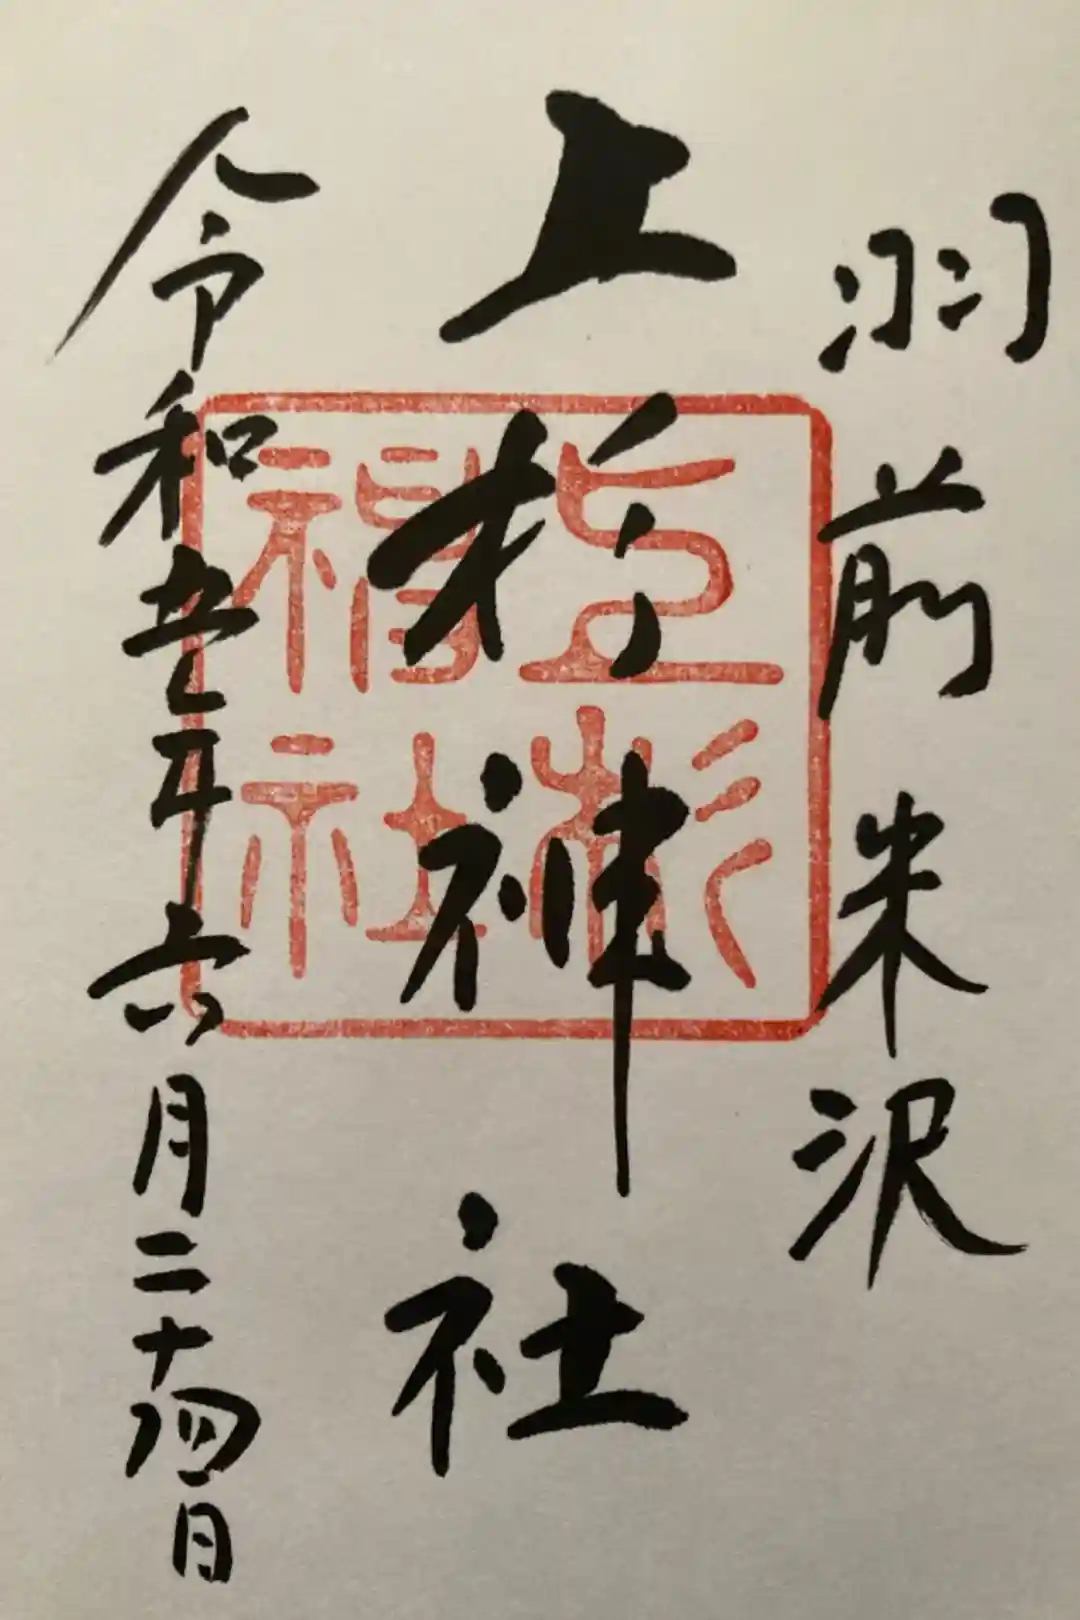 羽前米沢
上杉神社
上杉神社
令和五年六月二十四日